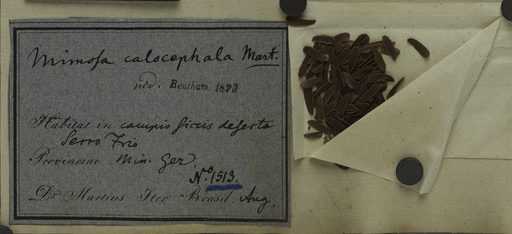 Mimosa calocephala Mart.
ned. Bentham 1873
Habitat in campis siccis deserto
Serro Frio
Provinciae Min. Ger.
No. 1513.
Dr. Martius Iter Brasil. Aug.